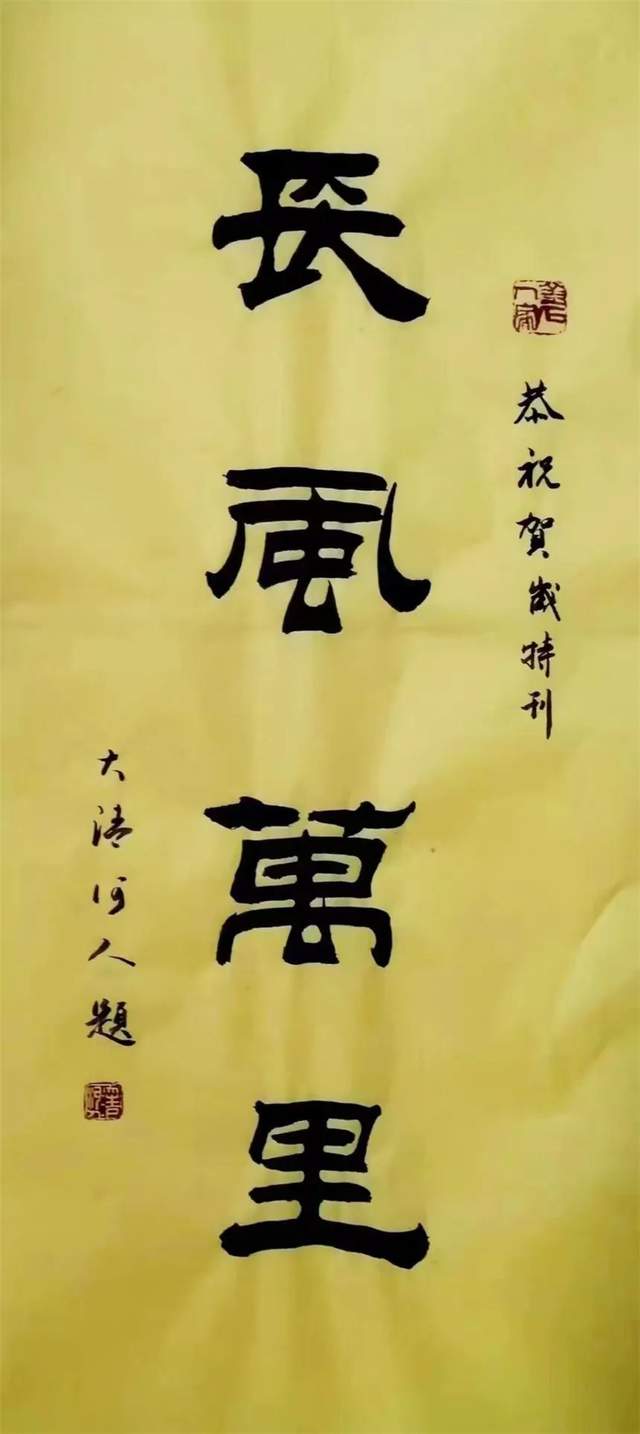 恭祝贺歲特刊
長風萬里
大清河人題